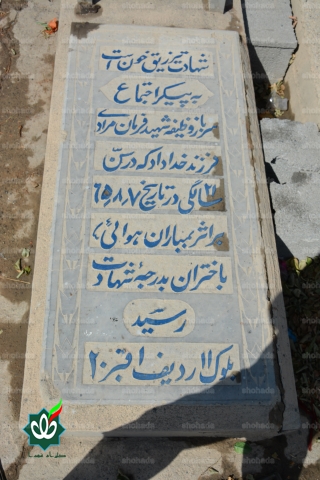 شهادت تزریق خون است
به پیکر اجتماع
سرباز وظیفه شهید فرمان مرادی
فرزند خداداد که در سن
۲۱ سالگی در تاریخ ۶۵٫۸٫۷
بر اثر بمباران هوائی
باختران بدرجه شهادت
رسید
بلوک ۱۱ ردیف ۱ قبر ۲۰